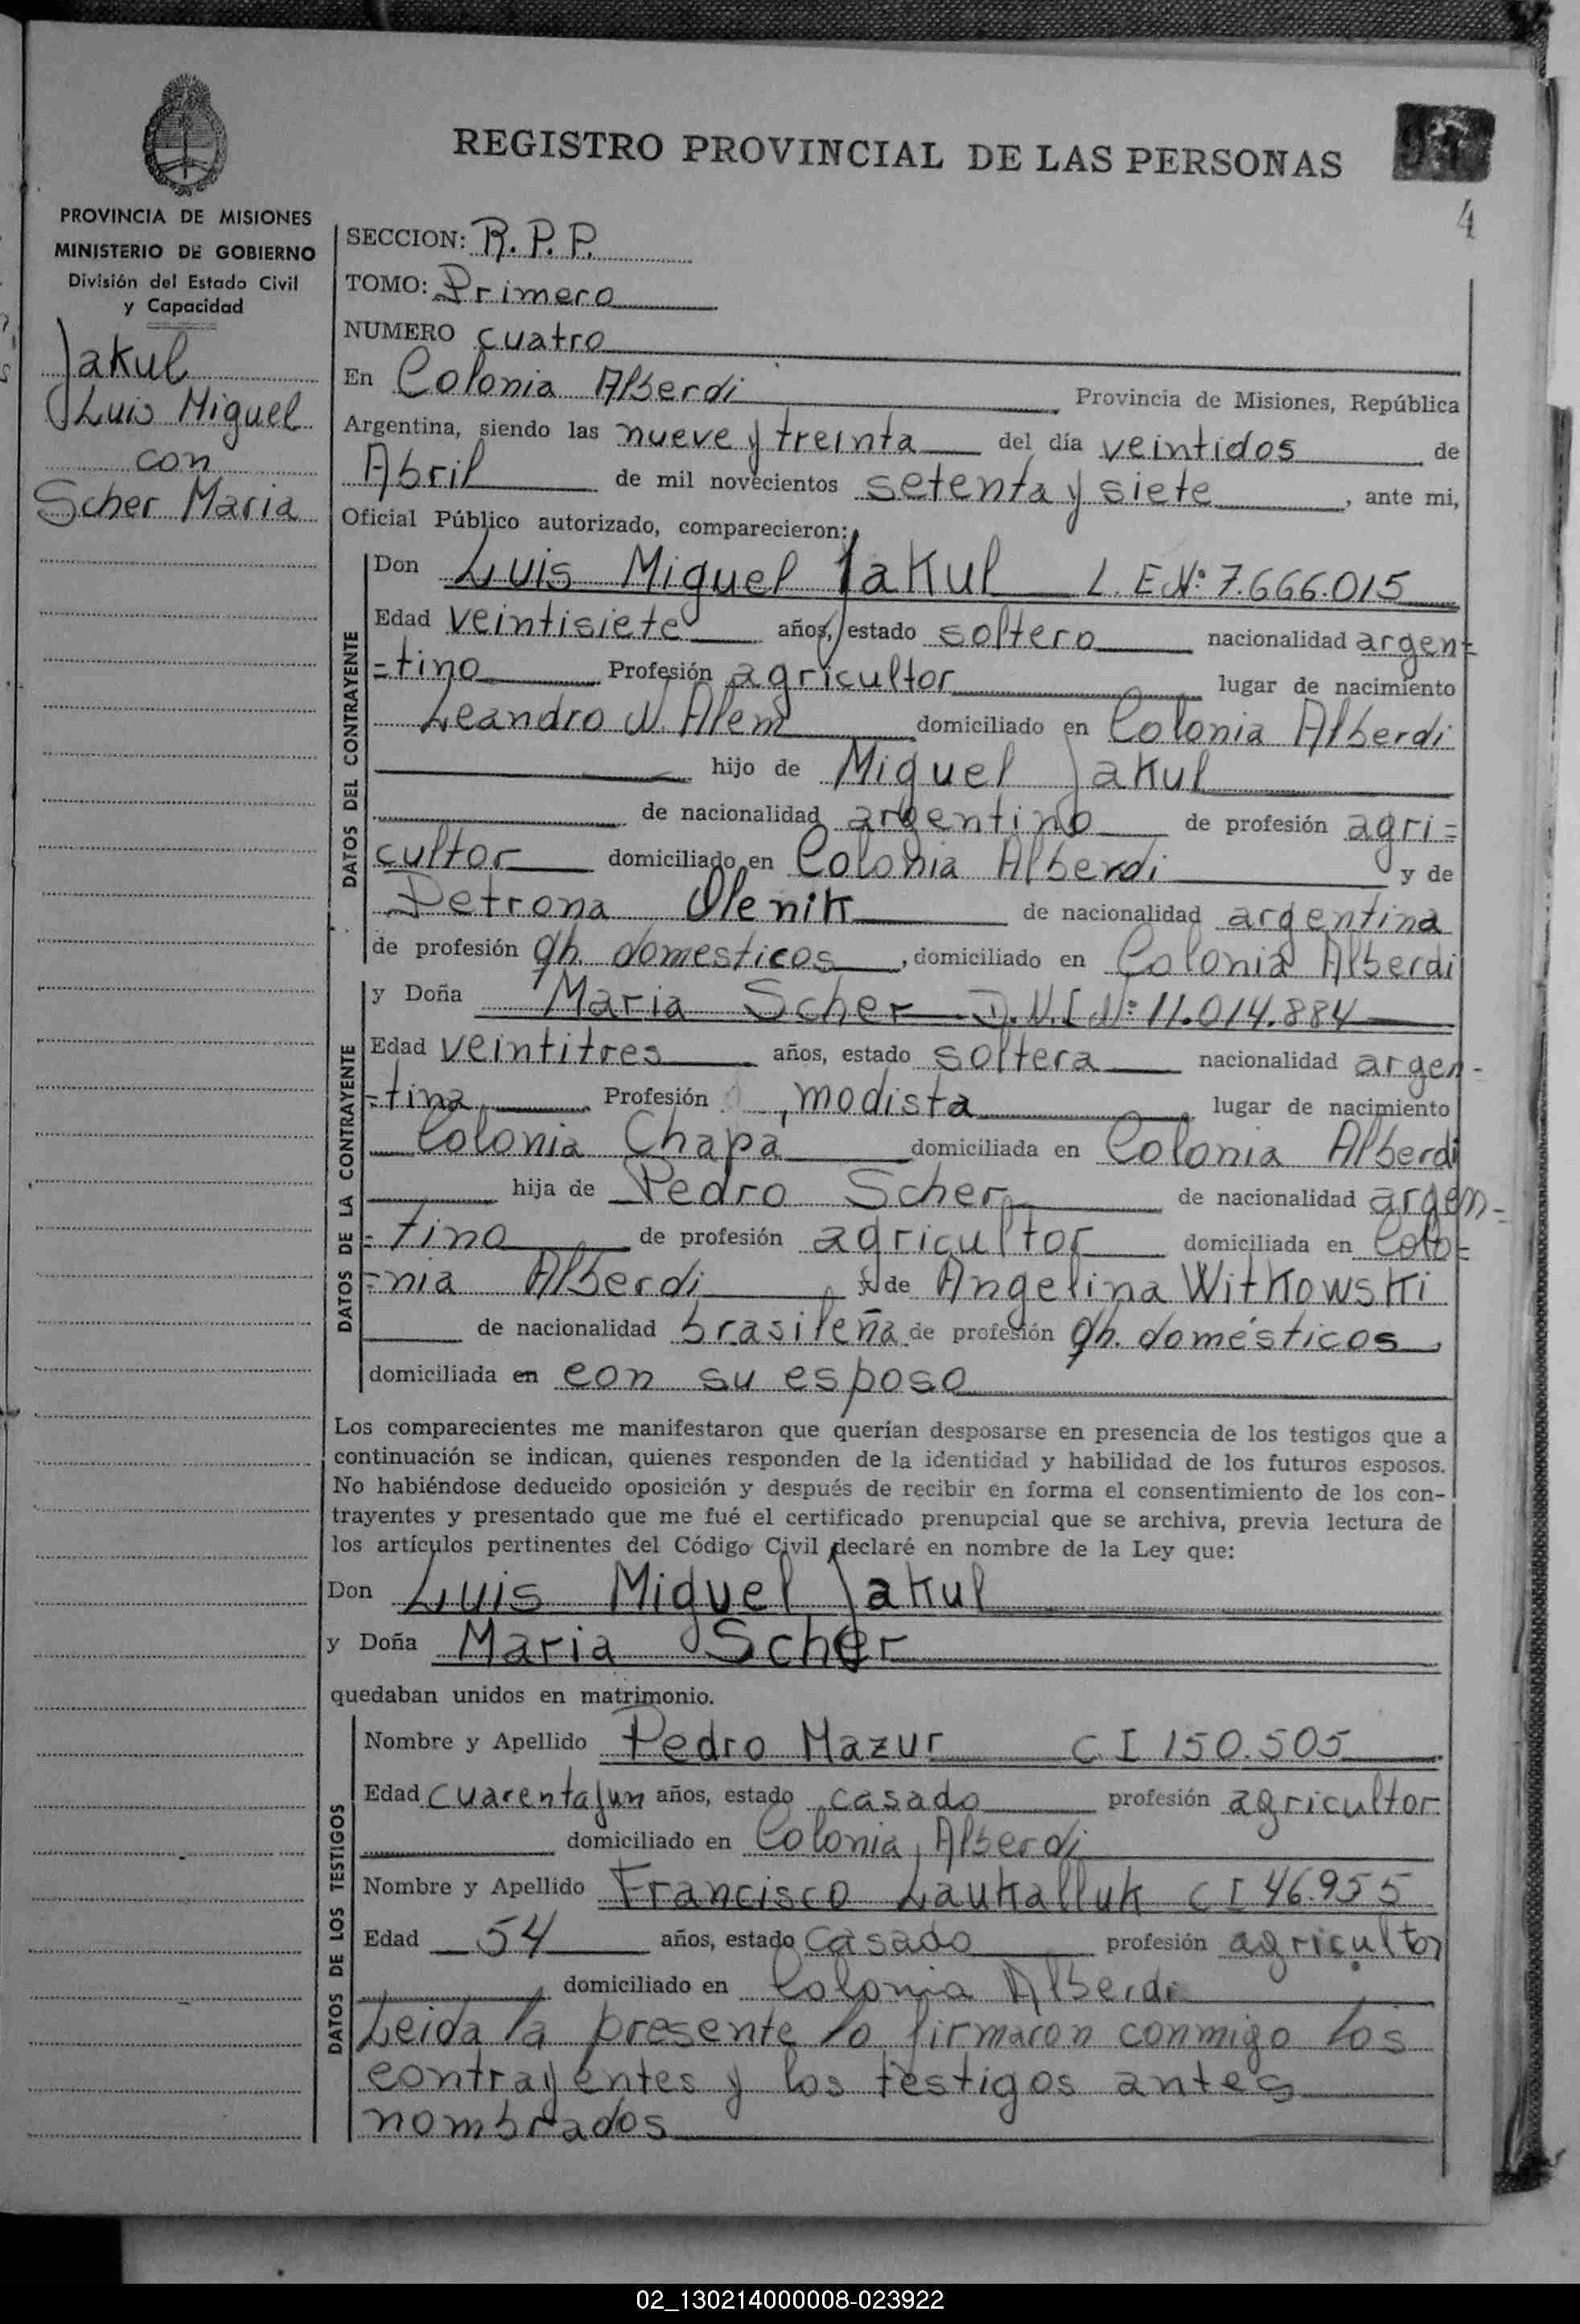 REGISTRO PROVINCIAL DE LAS PERSONAS
4
PROVINCIA DE MISIONES
MINISTERIO DE GOBIERNO
División del Estado Civil
y Capacidad
Jakul
Luis Miguel
con
Scher Maria
SECCION: R.P.P.
TOMO: Primero
NUMERO cuatro
En Colonia Alberdi Provincia de Misiones, República
Argentina, siendo las nueve y treinta del día veintidos de
Abril de mil novecientos setenta y siete, ante mi,
Oficial Público autorizado, comparecieron:
DATOS DEL CONTRAYENTE
Don Luis Miguel Jakul L.E.Nº 7.666.015
Edad veintisiete años, estado soltero nacionalidad argen=
=tino Profesión agricultor lugar de nacimiento
Leandro N. Alem domiciliado en Colonia Alberdi
hijo de Miguel Jakul
de nacionalidad argentino de profesión agri=
cultor domiciliado en Colonia Alberdi y de
Petrona Olenik de nacionalidad argentina
de profesión qh. domesticos, domiciliado en Colonia Alberdi
DATOS DE LA CONTRAYENTE
y Doña Maria Scher D.N.I Nº 11.014.884
Edad veintitres años, estado soltera nacionalidad argen-
=tina Profesión modista lugar de nacimiento
Colonia Chapa domiciliada en Colonia Alberdi
hija de Pedro Scher de nacionalidad argen-
=tino de profesión agricultor domiciliada en Colo=
=nia Alberdi y de Angelina Witkowski
de nacionalidad brasileña de profesión qh. domésticos,
domiciliada en con su esposo
Los comparecientes me manifestaron que querían desposarse en presencia de los testigos que a
continuación se indican, quienes responden de la identidad y habilidad de los futuros esposos.
No habiéndose deducido oposición y después de recibir en forma el consentimiento de los con-
trayentes y presentado que me fué el certificado prenupcial que se archiva, previa lectura de
los artículos pertinentes del Código Civil declaré en nombre de la Ley que:
Don Luis Miguel Jakul
y Doña Maria Scher
quedaban unidos en matrimonio.
DATOS DE LOS TESTIGOS
Nombre y Apellido Pedro Mazur C I 150.505
Edad cuarentaյun años, estado casado profesión agricultor
domiciliado en Colonia Alberdi
Nombre y Apellido Francisco Laukalluk C I 46.955
Edad 54 años, estado casado profesión agricultor
domiciliado en Colonia Alberdi
Leida la presente lo firmaron conmigo los
contrayentes y los testigos antes
nombrados
02_130214000008-023922